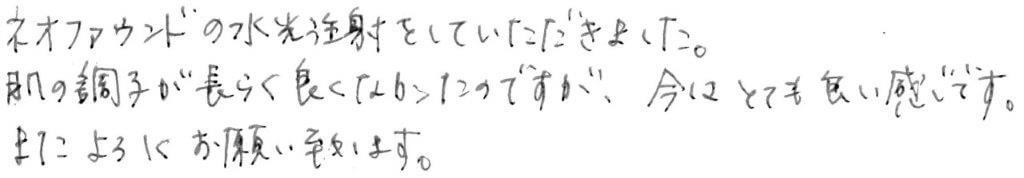 ネオファウンドの水光注射をしていただきました。
肌の調子が長らく良くなかったのですが、今はとても良い感じです。
またよろしくお願い致します。